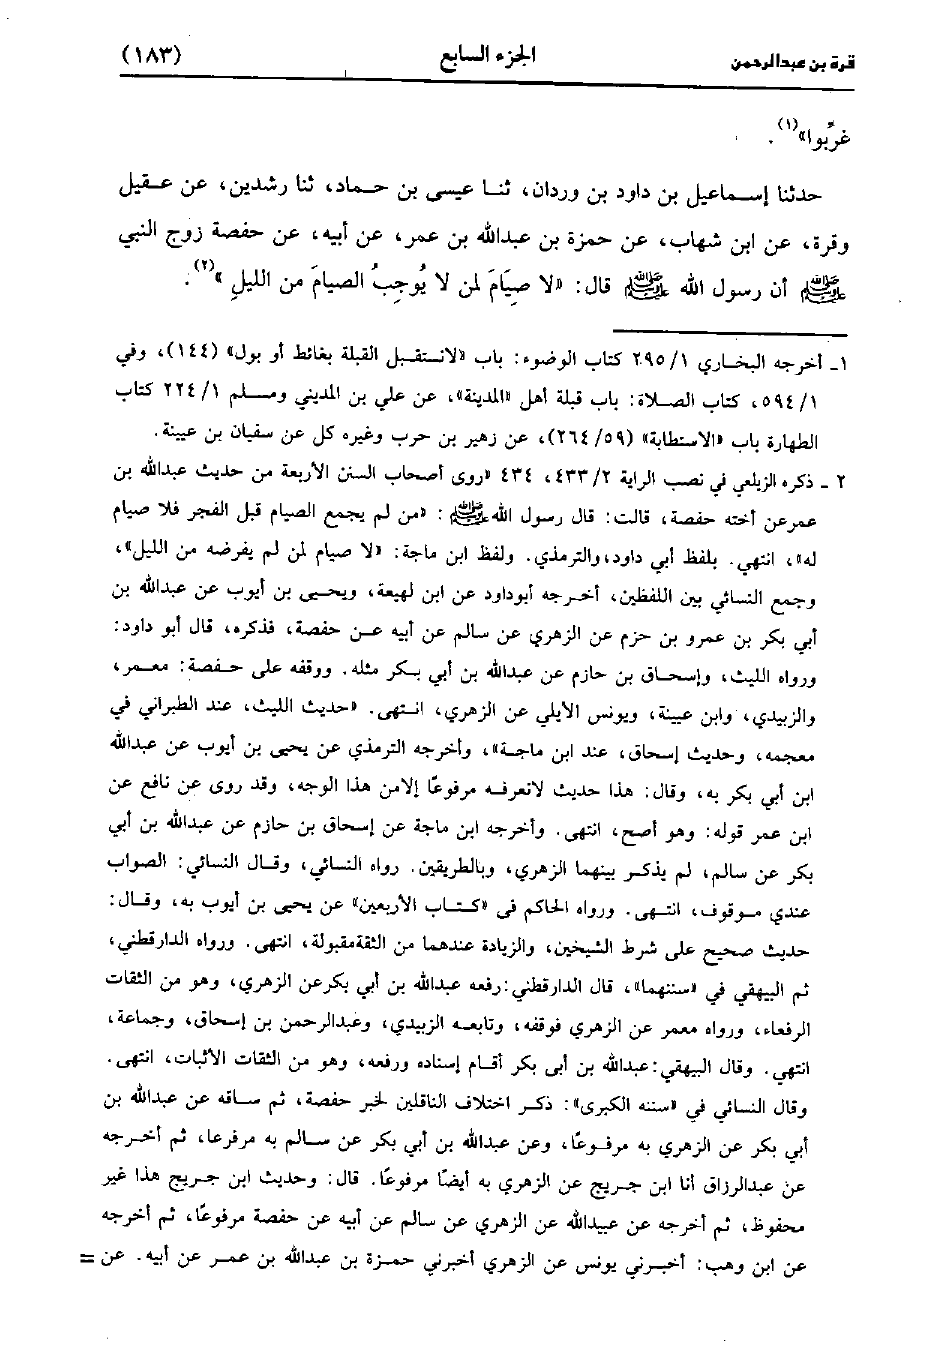 قرة بن عبدالرحمن الجزء السابع (١٨٣)
غربُوا»(١).
حدثنا إسماعيل بن داود بن وردان، ثنا عيسى بن حماد، ثنا رشدين، عن عقيل
وقرة، عن ابن شهاب، عن حمزة بن عبدالله بن عمر، عن أبيه، عن حفصة زوج النبي
ﷺ أن رسول الله ﷺ قال: «لا صِيَامَ لمن لا يُوجِبُ الصيامَ من الليلِ»(٢).
١- أخرجه البخاري ٢٩٥/١ كتاب الوضوء: باب «لاتستقبل القبلة بغائط أو بول» (١٤٤)، وفي
٥٩٤/١، كتاب الصلاة: باب قبلة أهل «المدينة»، عن علي بن المديني ومسلم ٢٢٤/١ كتاب
الطهارة باب «الاستطابة» (٢٦٤/٥٩)، عن زهير بن حرب وغيره كل عن سفيان بن عيينة.
٢ - ذكره الزيلعي في نصب الراية ٤٣٣/٢، ٤٣٤ «روى أصحاب السنن الأربعة من حديث عبدالله بن
عمرعن أخته حفصة، قالت: قال رسول اللهﷺ: «من لم يجمع الصيام قبل الفجر فلا صيام
له»، انتهي. بلفظ أبي داود، والترمذي. ولفظ ابن ماجة: «لا صيام لمن لم يفرضه من الليل»،
وجمع النسائي بين اللفظين، أخرجه أبوداود عن ابن لهيعة، ويحيى بن أيوب عن عبدالله بن
أبي بكر بن عمرو بن حزم عن الزهري عن سالم عن أبيه عن حفصة، فذكره، قال أبو داود:
ورواه الليث، وإسحاق بن حازم عن عبدالله بن أبي بكر مثله. ووقفه على حفصة: معمر،
والزبيدي، وابن عيينة، ويونس الأيلي عن الزهري، انتهى. «حديث الليث، عند الطبراني في
معجمه، وحديث إسحاق، عند ابن ماجة»، وأخرجه الترمذي عن يحيى بن أيوب عن عبدالله
ابن أبي بكر به، وقال: هذا حديث لانعرفه مرفوعًا إلامن هذا الوجه، وقد روى عن نافع عن
ابن عمر قوله: وهو أصح، انتهى. وأخرجه ابن ماجة عن إسحاق بن حازم عن عبدالله بن أبي
بكر عن سالم، لم يذكر بينهما الزهري، وبالطريقين. رواه النسائي، وقال النسائي: الصواب
عندي موقوف، انتهى. ورواه الحاكم فى «كتاب الأربعين» عن يحيى بن أيوب به، وقال:
حديث صحيح على شرط الشيخين، والزيادة عندهما من الثقةمقبولة، انتهى. ورواه الدارقطني،
ثم البيهقي في «سننهما»، قال الدارقطني: رفعه عبدالله بن أبي بكرعن الزهري، وهو من الثقات
الرفعاء، ورواه معمر عن الزهري فوقفه، وتابعه الزبيدي، وعبدالرحمن بن إسحاق، وجماعة،
انتهي. وقال البيهقي: عبدالله بن أبى بكر أقام إسناده ورفعه، وهو من الثقات الأثبات، انتهى.
وقال النسائي في «سننه الكبرى»: ذكر اختلاف الناقلين لخبر حفصة، ثم ساقه عن عبدالله بن
أبي بكر عن الزهري به مرفوعًا، وعن عبدالله بن أبي بكر عن سالم به مرفرعا، ثم أخرجه
عن عبدالرزاق أنا ابن جريج عن الزهري به أيضًا مرفوعًا. قال: وحديث ابن جريج هذا غير
محفوظ، ثم أخرجه عن عبيدالله عن الزهري عن سالم عن أبيه عن حفصة مرفوعًا، ثم أخرجه
عن ابن وهب: أخبرني يونس عن الزهري أخبرني حمزة بن عبدالله بن عمر عن أبيه. عن =